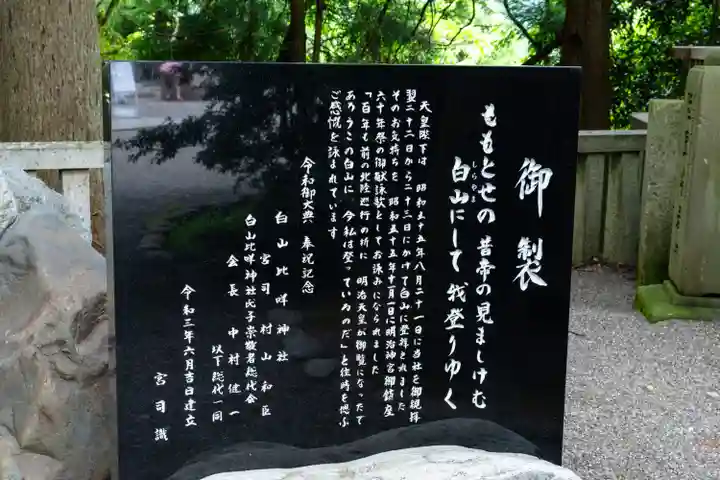 御製
ももとせの 昔帝の見ましけむ
しらやま
白山にして 我登りゆく
天皇陛下は 昭和五十五年八月二十一日に当社を御親拝
翌二十二日から二十三日にかけて白山に登拝されました
そのお気持ちを 昭和五十五年十一月一日に明治神宮御鎮座
六十年祭の御献詠歌としてお詠みになられました
「百年も前の北陸巡行の折に 明治天皇が御覧になったで
あろうこの白山に 今私は登っているのだ」と往時を想ぶ
ご感慨を詠まれています
令和御大典 奉祝記念
白山比咩神社
宮司 村山和臣
白山比咩神社氏子崇敬者総代会
会長 中村健一
以下総代一同
令和三年六月吉日建立
宮司 識